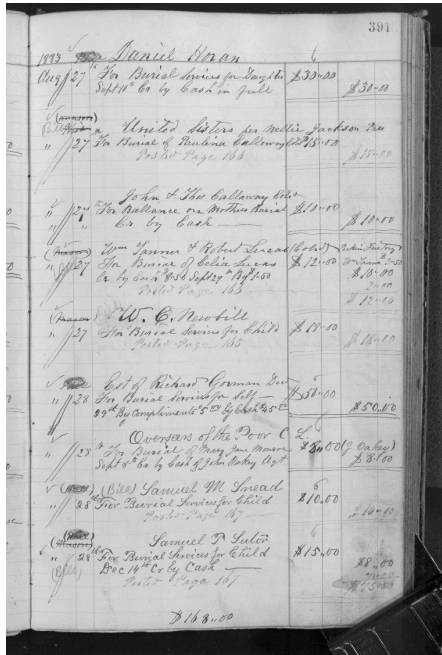 391
1893 Daniel Horan 6
Aug 27 For Burial Services for Daughter $30.00
Sept 11th Cr by Cash in full $30.00
(Mason)
Bill United Sisters per Nellie Jackson Pres
" 27 For Burial of Paulina Calloway $15.00
Posted Page 166 $15.00
John & Thos Calloway Cold
" 27 For Ballance on Mothers Burial $10.00
" " Cr by Cash — $10.00
(Mason) Wm Tanner & Robert Lucas (Cold)
" 27 For Burial of Celia Lucas $12.00
Bill Cr by Cash 8.50 Sept 29th By $1.50 $10.00
Posted Page 165 2.00
$12.00
Bill
(Mason) W. C. Newbill
" 27 For Burial Services for Child $18.00
Posted Page 165 $18.00
Est of Richard Gorman Dec 6
" 28 For Burial Services for Self — $50.00
29th By Compliments $5.00 by Cash $45.00 $50.00
Overseers of the Poor C L
" 28th For Burial of Mary Jane Monroe $3.00 (J Oakey)
Sept 8th Cr by Cash of John Oakey Agt $3.00
(Bill) Samuel M. Snead 6
" 28th For Burial Services for Child $10.00
Posted Page 167 $10.00
(Mason) Samuel P Sutor 6
" 28th For Burial Services for Child $15.00
(Bill) Dec 14th Cr by Cash — $8.00
Posted Page 167 $15.00
$163.00